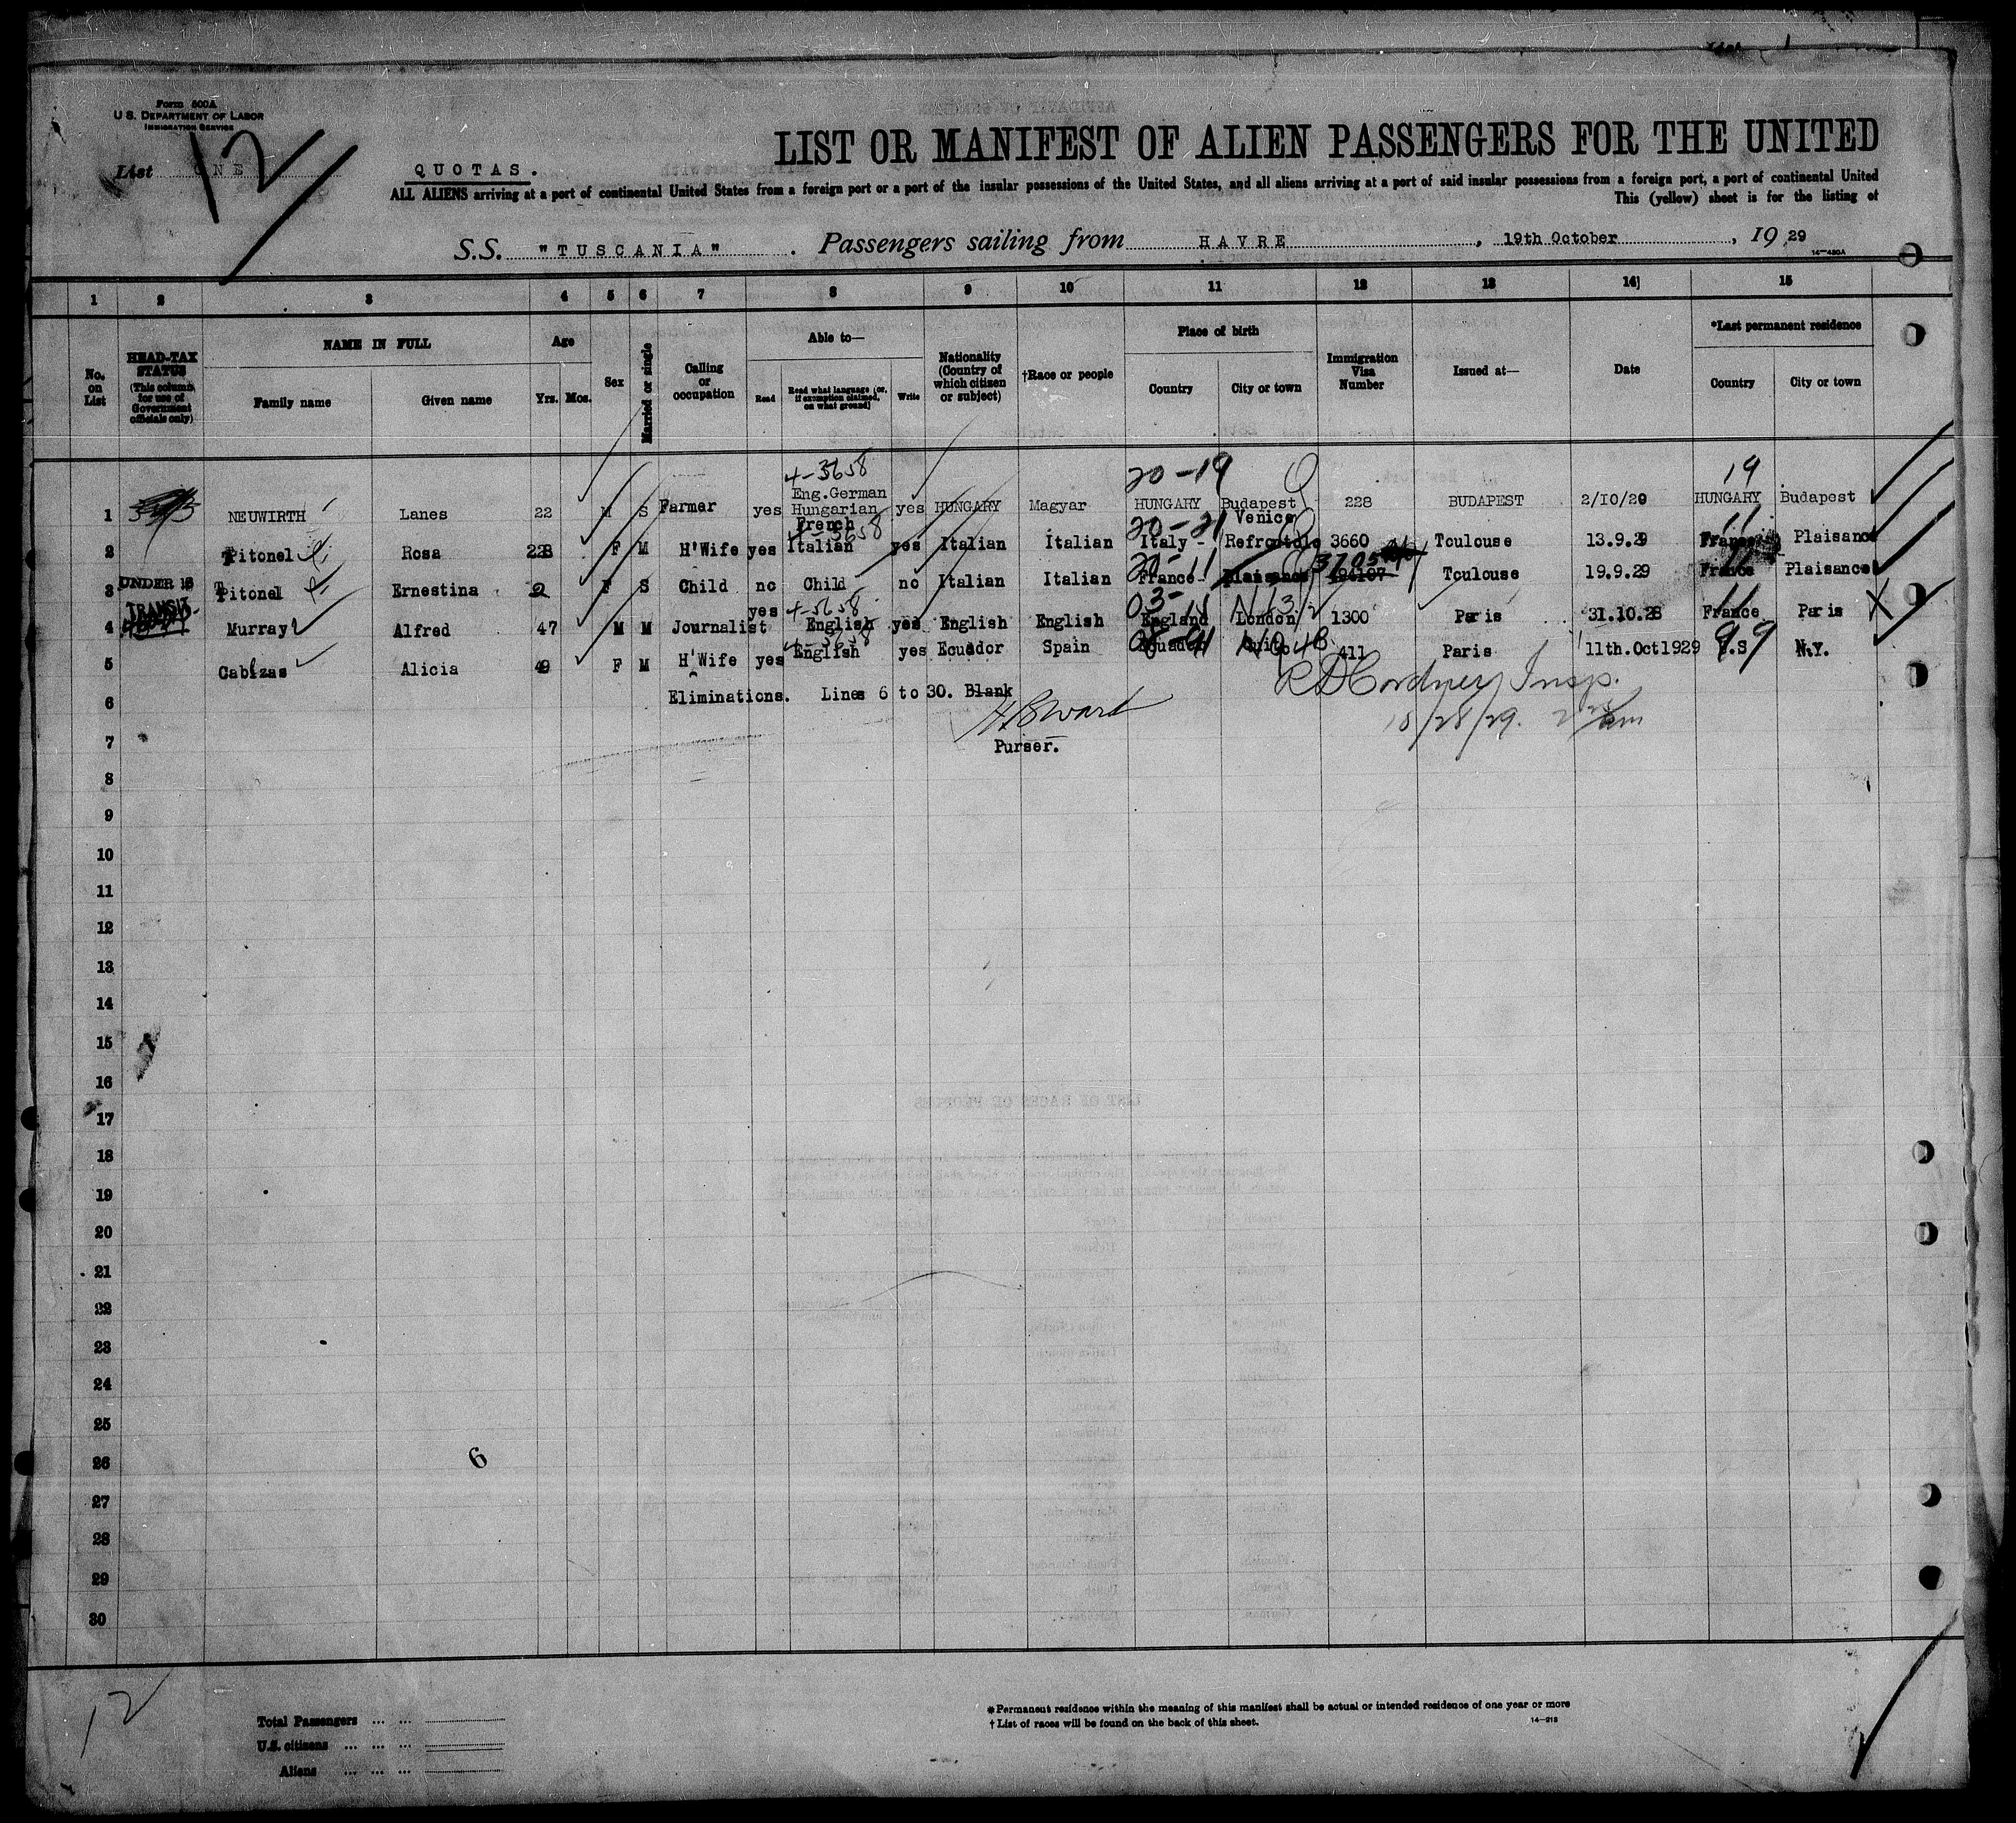 Form 500A
U. S. DEPARTMENT OF LABOR
IMMIGRATION SERVICE
List ONE
12
QUOTAS.
LIST OR MANIFEST OF ALIEN PASSENGERS FOR THE UNITED
ALL ALIENS arriving at a port of continental United States from a foreign port or a port of the insular possessions of the United States, and all aliens arriving at a port of said insular possessions from a foreign port, a port of continental United
This (yellow) sheet is for the listing of
S.S. "TUSCANIA" . Passengers sailing from HAVRE , 19th October , 19 29
14—420A
1 2 3 4 5 6 7 8 9 10 11 12 13 14 15
No. on List
HEAD-TAX STATUS (This column for use of Government officials only)
NAME IN FULL
Family name Given name
Age
Yrs. Mos.
Sex
Married or single
Calling or occupation
Able to—
Read Read what language (or, if exemption claimed, on what ground) Write
Nationality (Country of which citizen or subject)
†Race or people
Place of birth
Country City or town
Immigration Visa Number
Issued at—
Date
*Last permanent residence
Country City or town
4-3658 20-19 19
1 NEUWIRTH Lanes 22 M S Farmer yes Eng.German Hungarian yes HUNGARY Magyar HUNGARY Budapest 228 BUDAPEST HUNGARY Budapest
French 4-3658 20-21 Venice 11
2 Pitonel Rosa F M H'Wife yes Italian yes Italian Italian Italy 3660 Toulouse 13.9.29 France Plaisance
UNDER 16 20-11 3705 11
3 Pitonel Ernestina 2 F S Child no Child no Italian Italian France Plaisance Toulouse 19.9.29 France Plaisance
TRANSIT 4-3658 03-15 11
4 Murray Alfred 47 M M Journalist yes English yes English English England London 1300 Paris 31.10.28 France Paris
4-3658 99
5 Cabezas Alicia F M H'Wife yes English yes Ecuador Spain Ecuador Quito 411 Paris 11th.Oct1929 U.S N.Y.
6 Eliminations. Lines 6 to 30. Blank
Insp.
H B Ward
10/28/29.
7 Purser.
8
9
10
11
12
13
14
15
16
17
18
19
20
21
22
23
24
25
26
6
27
28
29
30
12
Total Passengers ... ...
U.S. citizens ... ... ...
Aliens ... ... ...
*Permanent residence within the meaning of this manifest shall be actual or intended residence of one year or more
†List of races will be found on the back of this sheet.
14—213